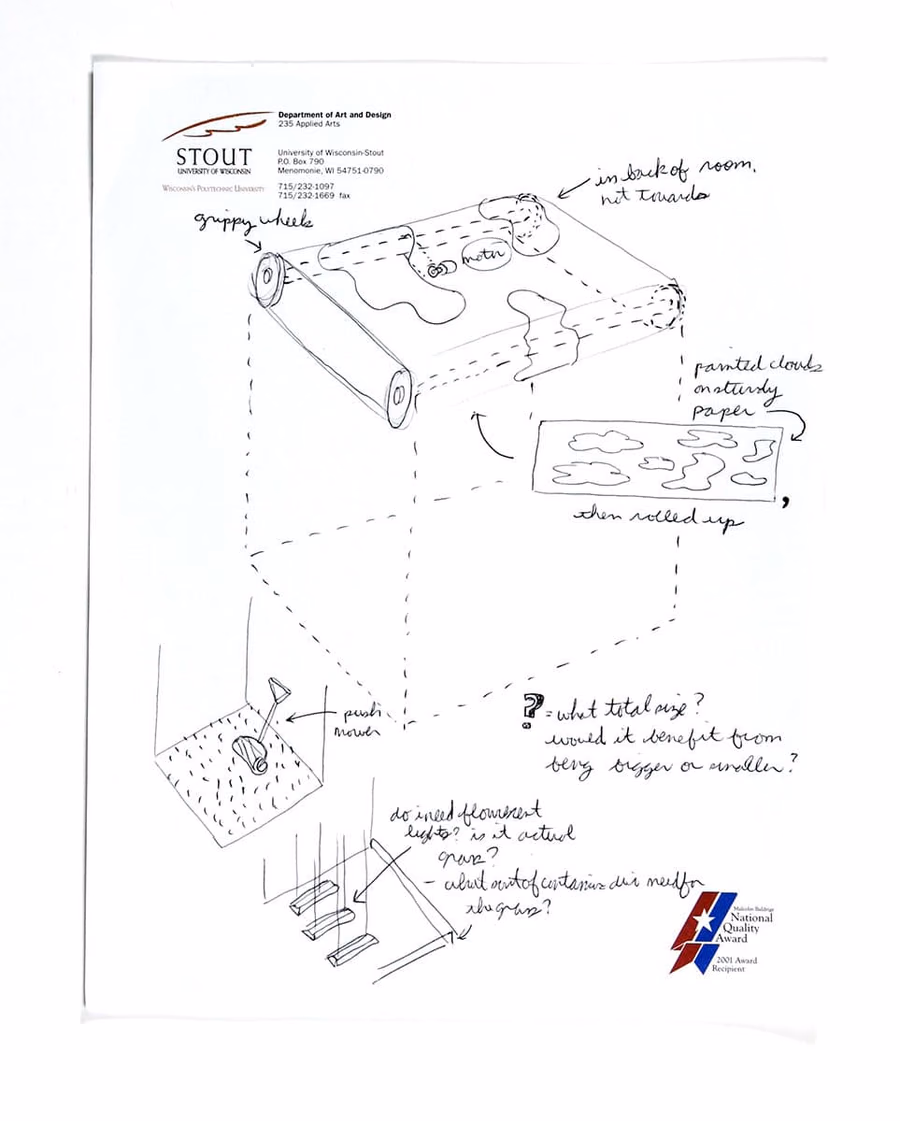 Department of Art and Design
235 Applied Arts
STOUT
UNIVERSITY OF WISCONSIN
University of Wisconsin-Stout
P.O. Box 790
Menomonie, WI 54751-0790
WISCONSIN'S POLYTECHNIC UNIVERSITY
715/232-1097
715/232-1669 fax
in back of room,
not towards
grippy wheels
motor
painted clouds
on sturdy
paper
,
then rolled up
push
mower
? = what total size?
would it benefit from
being bigger or smaller?
do i need flourescent
lights? is it actual
grass?
- what sort of container do i need for
the grass?
Malcolm Baldrige
National
Quality
Award
2001 Award
Recipient